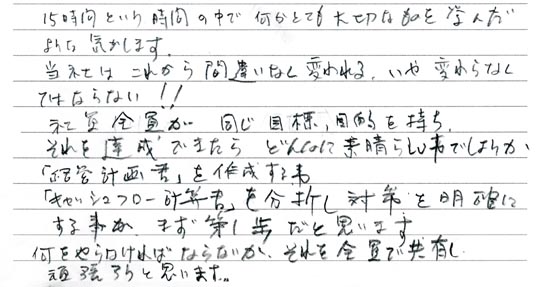 15時間という時間の中で何かとても大切な物を学んだ
ような気がします。
当社はこれから間違いなく変われる、いや変わらなく
てはならない!!
社員全員が同じ目標、目的を持ち、
それを達成できたらどんなに素晴らしい事でしょうか
「経営計画書」を作成する事
「キャッシュフロー計算書」を分折し対策を明確に
する事が、まず第1歩だと思います
何をやらなければならないか、それを全員で共有し
頑張ろうと思います。